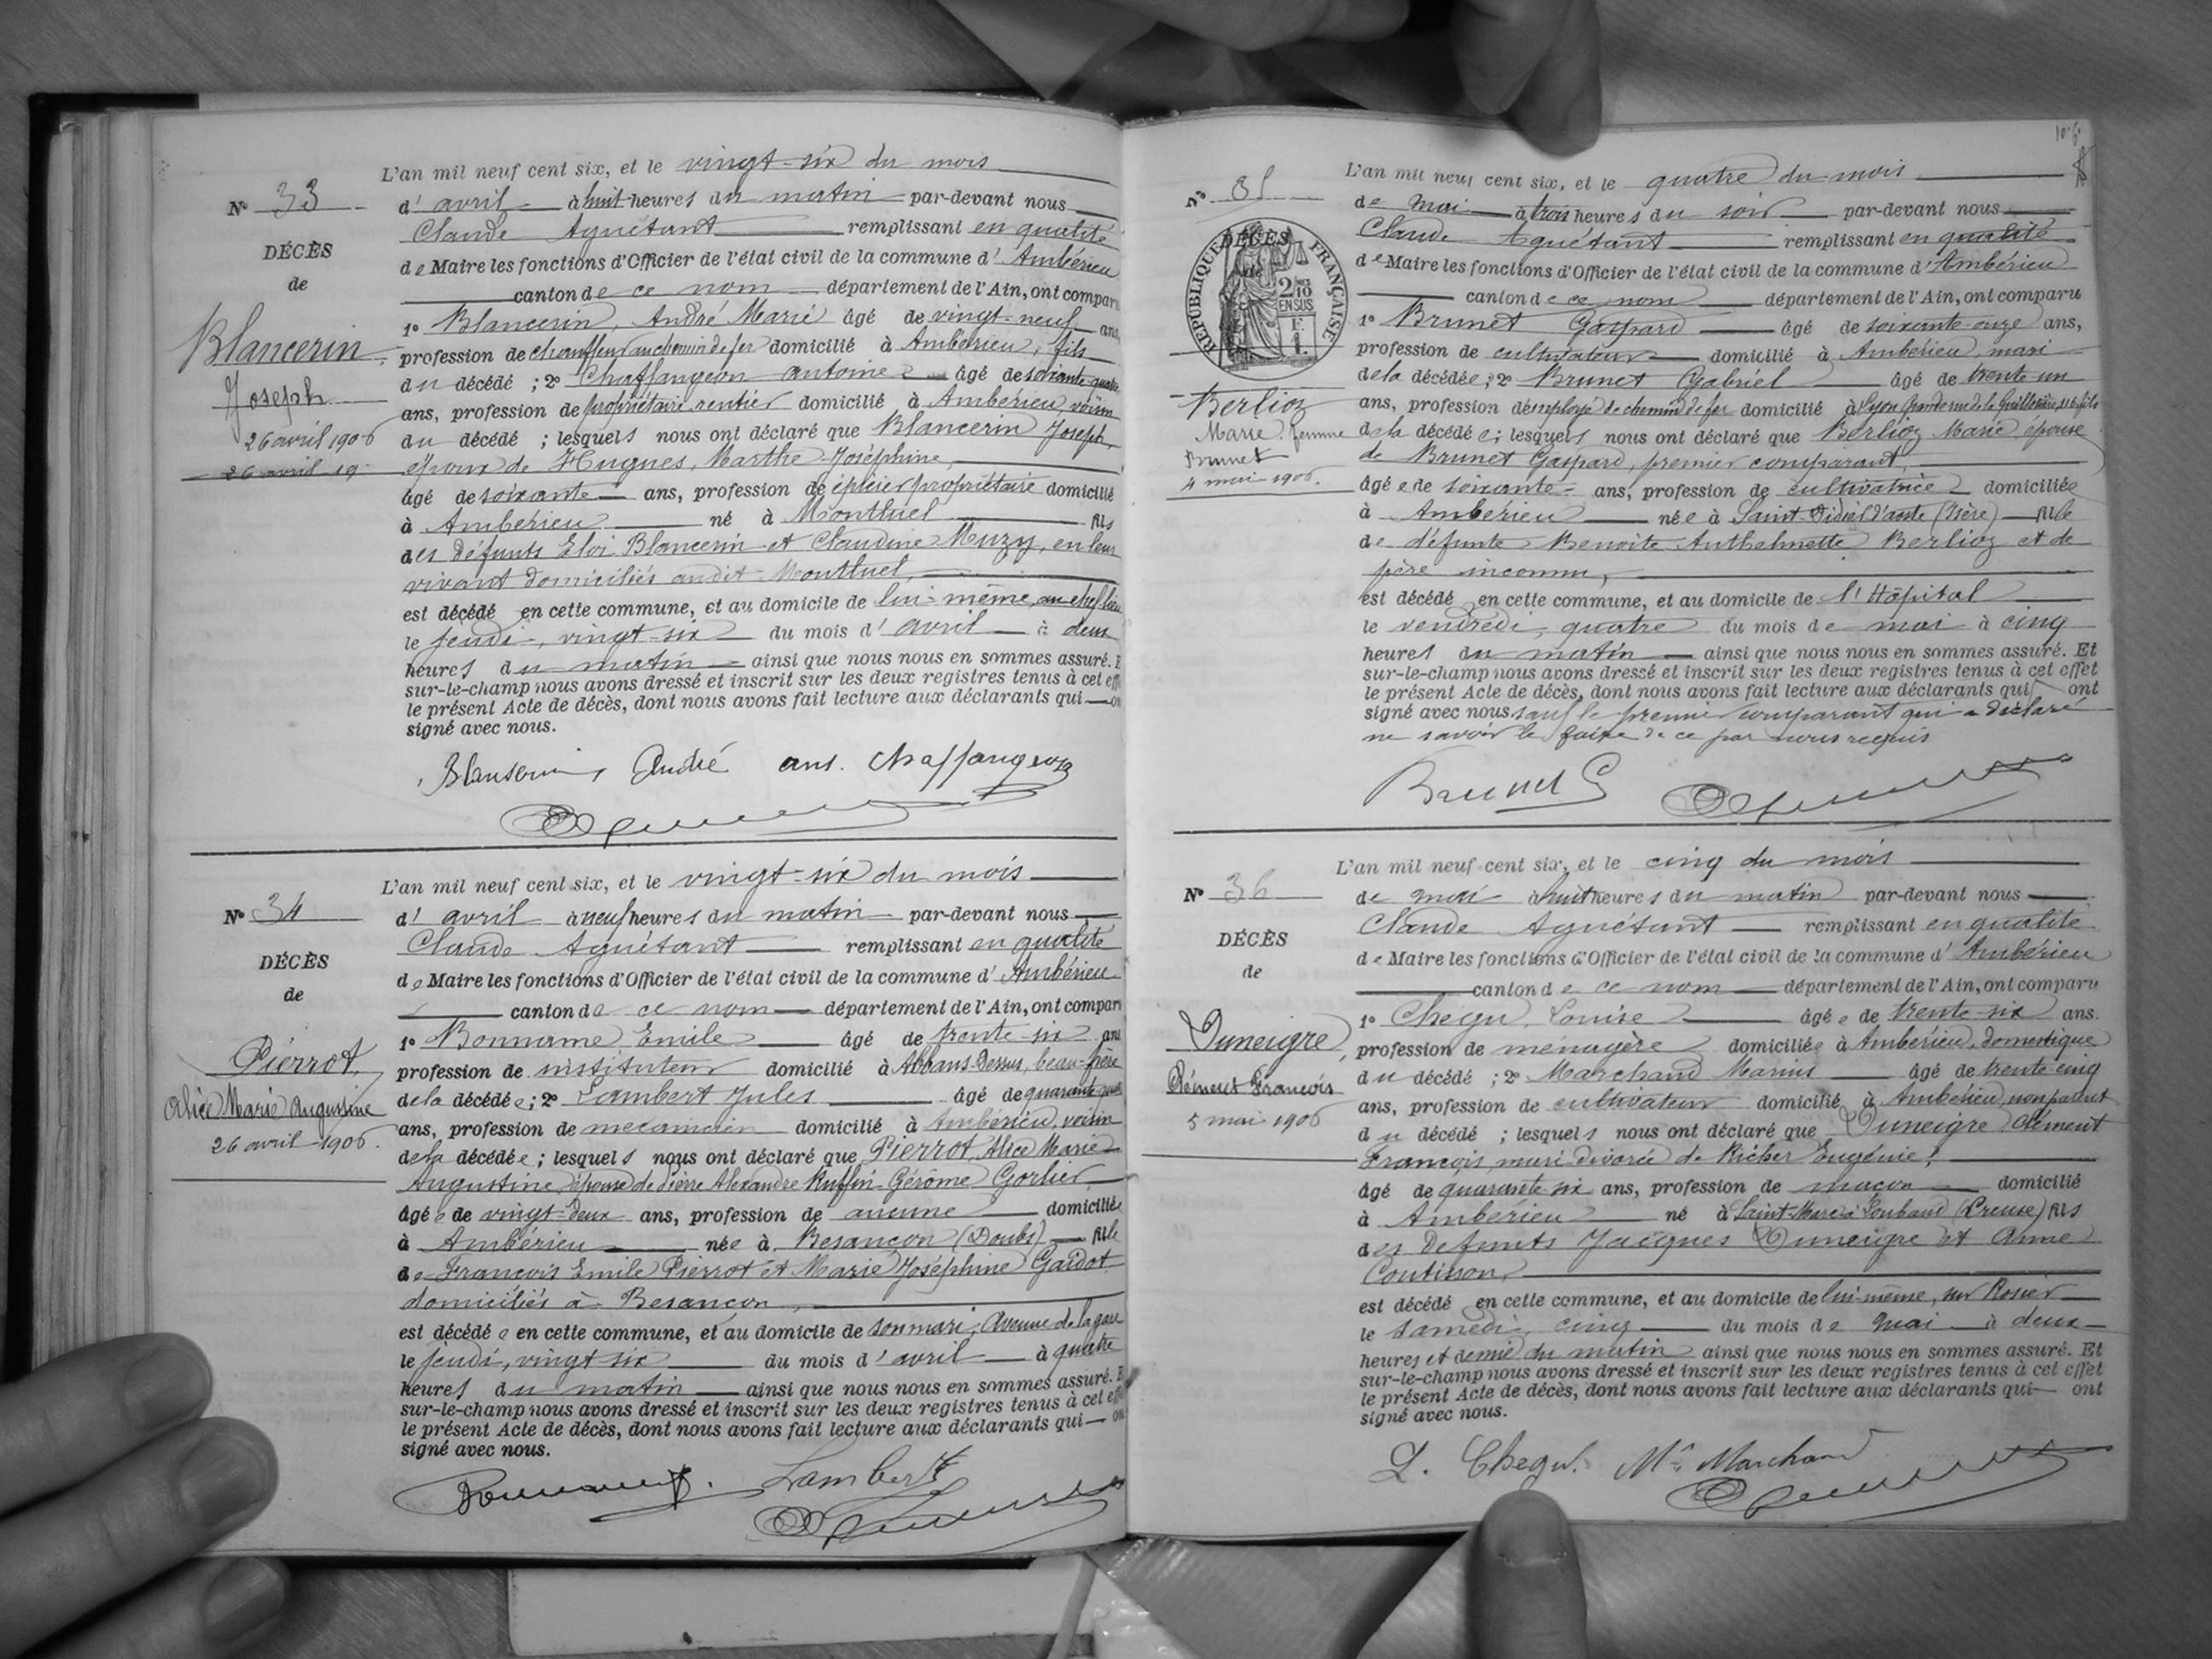 L'an mil neuf cent six, et le vingt-six du mois
Nº 33
d'avril à huit heures du matin par-devant nous
Claude Aguétant remplissant en qualité
DÉCÈS
de Maire les fonctions d'Officier de l'état civil de la commune d'Ambérieu
de
canton de ce nom département de l'Ain, ont compar
1º Blancerin, André Marie âgé de vingt-neuf ans
Blancerin
profession de chauffeur au chemin de fer domicilié à Ambérieu, fils
Joseph
du décédé ; 2º Chaffangeon Antoine âgé de soixante-quatre
26 avril 1906
ans, profession de propriétaire rentier domicilié à Ambérieu, voisin
du décédé ; lesquels nous ont déclaré que Blancerin Joseph,
26 avril 19
époux de Hugues, Marthe Joséphine,
âgé de soixante ans, profession de épicier propriétaire domicilié
à Ambérieu né à Montluel fils
des défunts Eloi Blancerin et Claudine Muzy, en leur
vivant domiciliés audit Montluel,
est décédé en cette commune, et au domicile de lui-même, au chef lieu
le jeudi, vingt-six du mois d'avril à deux
heures du matin ainsi que nous nous en sommes assuré. E
sur-le-champ nous avons dressé et inscrit sur les deux registres tenus à cet eff
le présent Acte de décès, dont nous avons fait lecture aux déclarants qui on
signé avec nous.
André ant. Chaffangeon
L'an mil neuf cent six, et le vingt-six du mois
Nº 34
d'avril à neuf heures du matin par-devant nous
Claude Aguétant remplissant en qualité
DÉCÈS
de Maire les fonctions d'Officier de l'état civil de la commune d'Ambérieu
de
canton de ce nom département de l'Ain, ont compar
1º Bonname Emile âgé de trente-six ans
Pierrot
profession de instituteur domicilié à Abbans-Dessus, beau-frère
Alice Marie Augustine
de la décédée ; 2º Lambert Jules âgé de quarante
26 avril 1906.
ans, profession de mecanicien domicilié à Ambérieu, voisin
de la décédée ; lesquels nous ont déclaré que Pierrot, Alice Marie
Augustine, épouse de Pierre Alexandre Ruffin Gérôme Gorlier
âgée de vingt-deux ans, profession de aucune domiciliée
à Ambérieu née à Besançon (Doubs) fille
de François Emile Pierrot et Marie Joséphine Gardot
domiciliés à Besançon,
est décédée en cette commune, et au domicile de son mari, Avenue de la gare
le jeudi, vingt six du mois d'avril à quatre
heures du matin ainsi que nous nous en sommes assuré. E
sur-le-champ nous avons dressé et inscrit sur les deux registres tenus à cet eff
le présent Acte de décès, dont nous avons fait lecture aux déclarants qui on
signé avec nous.
Lambert
L'an mil neuf cent six, et le quatre du mois
Nº 35
de mai à trois heures du soir par-devant nous
Claude Aguétant remplissant en qualité
RÉPUBLIQUE FRANÇAISE
DÉCÈS
de
2/10 EN SUS
de Maire les fonctions d'Officier de l'état civil de la commune d'Ambérieu
canton de ce nom département de l'Ain, ont comparu
1º Brunet Gaspard âgé de soixante-onze ans,
profession de cultivateur domicilié à Ambérieu, mari
de la décédée ; 2º Brunet Gabriel âgé de trente un
Berlioz
ans, profession d'employé de chemin de fer domicilié à Lyon Grande rue de la Guillotière, fils
Marie femme
de la décédée ; lesquels nous ont déclaré que Berlioz Marie, épouse
Brunet
de Brunet Gaspard, premier comparant,
4 mai 1906.
âgée de soixante ans, profession de cultivatrice domiciliée
à Ambérieu née à Saint-Didier d'aoste (Isère) fille
de défunte Benoite Anthelmette Berlioz et de
père inconnu,
est décédé en cette commune, et au domicile de l'Hôpital
le vendredi, quatre du mois de mai à cinq
heures du matin ainsi que nous nous en sommes assuré. Et
sur-le-champ nous avons dressé et inscrit sur les deux registres tenus à cet effet
le présent Acte de décès, dont nous avons fait lecture aux déclarants qui ont
signé avec nous sauf le premier comparant qui a déclaré
ne savoir le faire de ce par nous requis
Brunet G
L'an mil neuf cent six, et le cinq du mois
Nº 36
de mai à huit heures du matin par-devant nous
Claude Aguétant remplissant en qualité
DÉCÈS
de Maire les fonctions d'Officier de l'état civil de la commune d'Ambérieu
de
canton de ce nom département de l'Ain, ont comparu
1º Chegu, Louise âgée de trente-six ans.
Duneigre
profession de ménagère domiciliée à Ambérieu, domestique
Clément François
du décédé ; 2º Marchand Marius âgé de trente-cinq
5 mai 1906
ans, profession de cultivateur domicilié à Ambérieu, non parent
du décédé ; lesquels nous ont déclaré que Duneigre Clément
François, mari divorcé de Richer Eugénie,
âgé de quarante-six ans, profession de maçon domicilié
à Ambérieu né à Saint-Marc à Loubaud (Creuse) fils
des défunts Jacques Duneigre et Anne
Coutisson,
est décédé en cette commune, et au domicile de lui-même, sur Rosier
le samedi, cinq du mois de mai à deux
heures et demie du matin ainsi que nous nous en sommes assuré. Et
sur-le-champ nous avons dressé et inscrit sur les deux registres tenus à cet effet
le présent Acte de décès, dont nous avons fait lecture aux déclarants qui ont
signé avec nous.
L. Chegu. Marchand